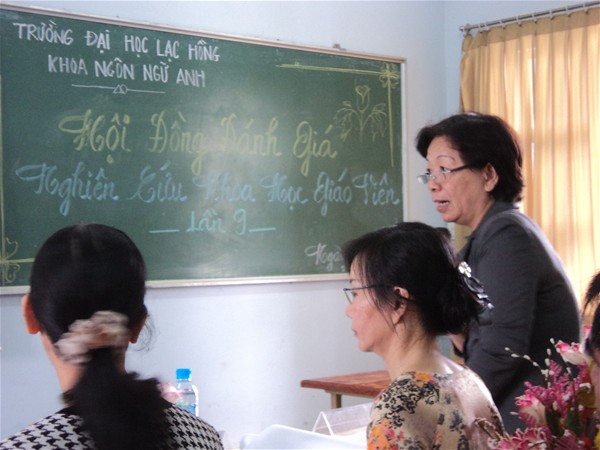 TRƯỜNG ĐẠI HỌC LẠC HỒNG
KHOA NGÔN NGỮ ANH
Hội Đồng Đánh Giá
Nghiên Cứu Khoa Học Giáo Viên
Lần 9